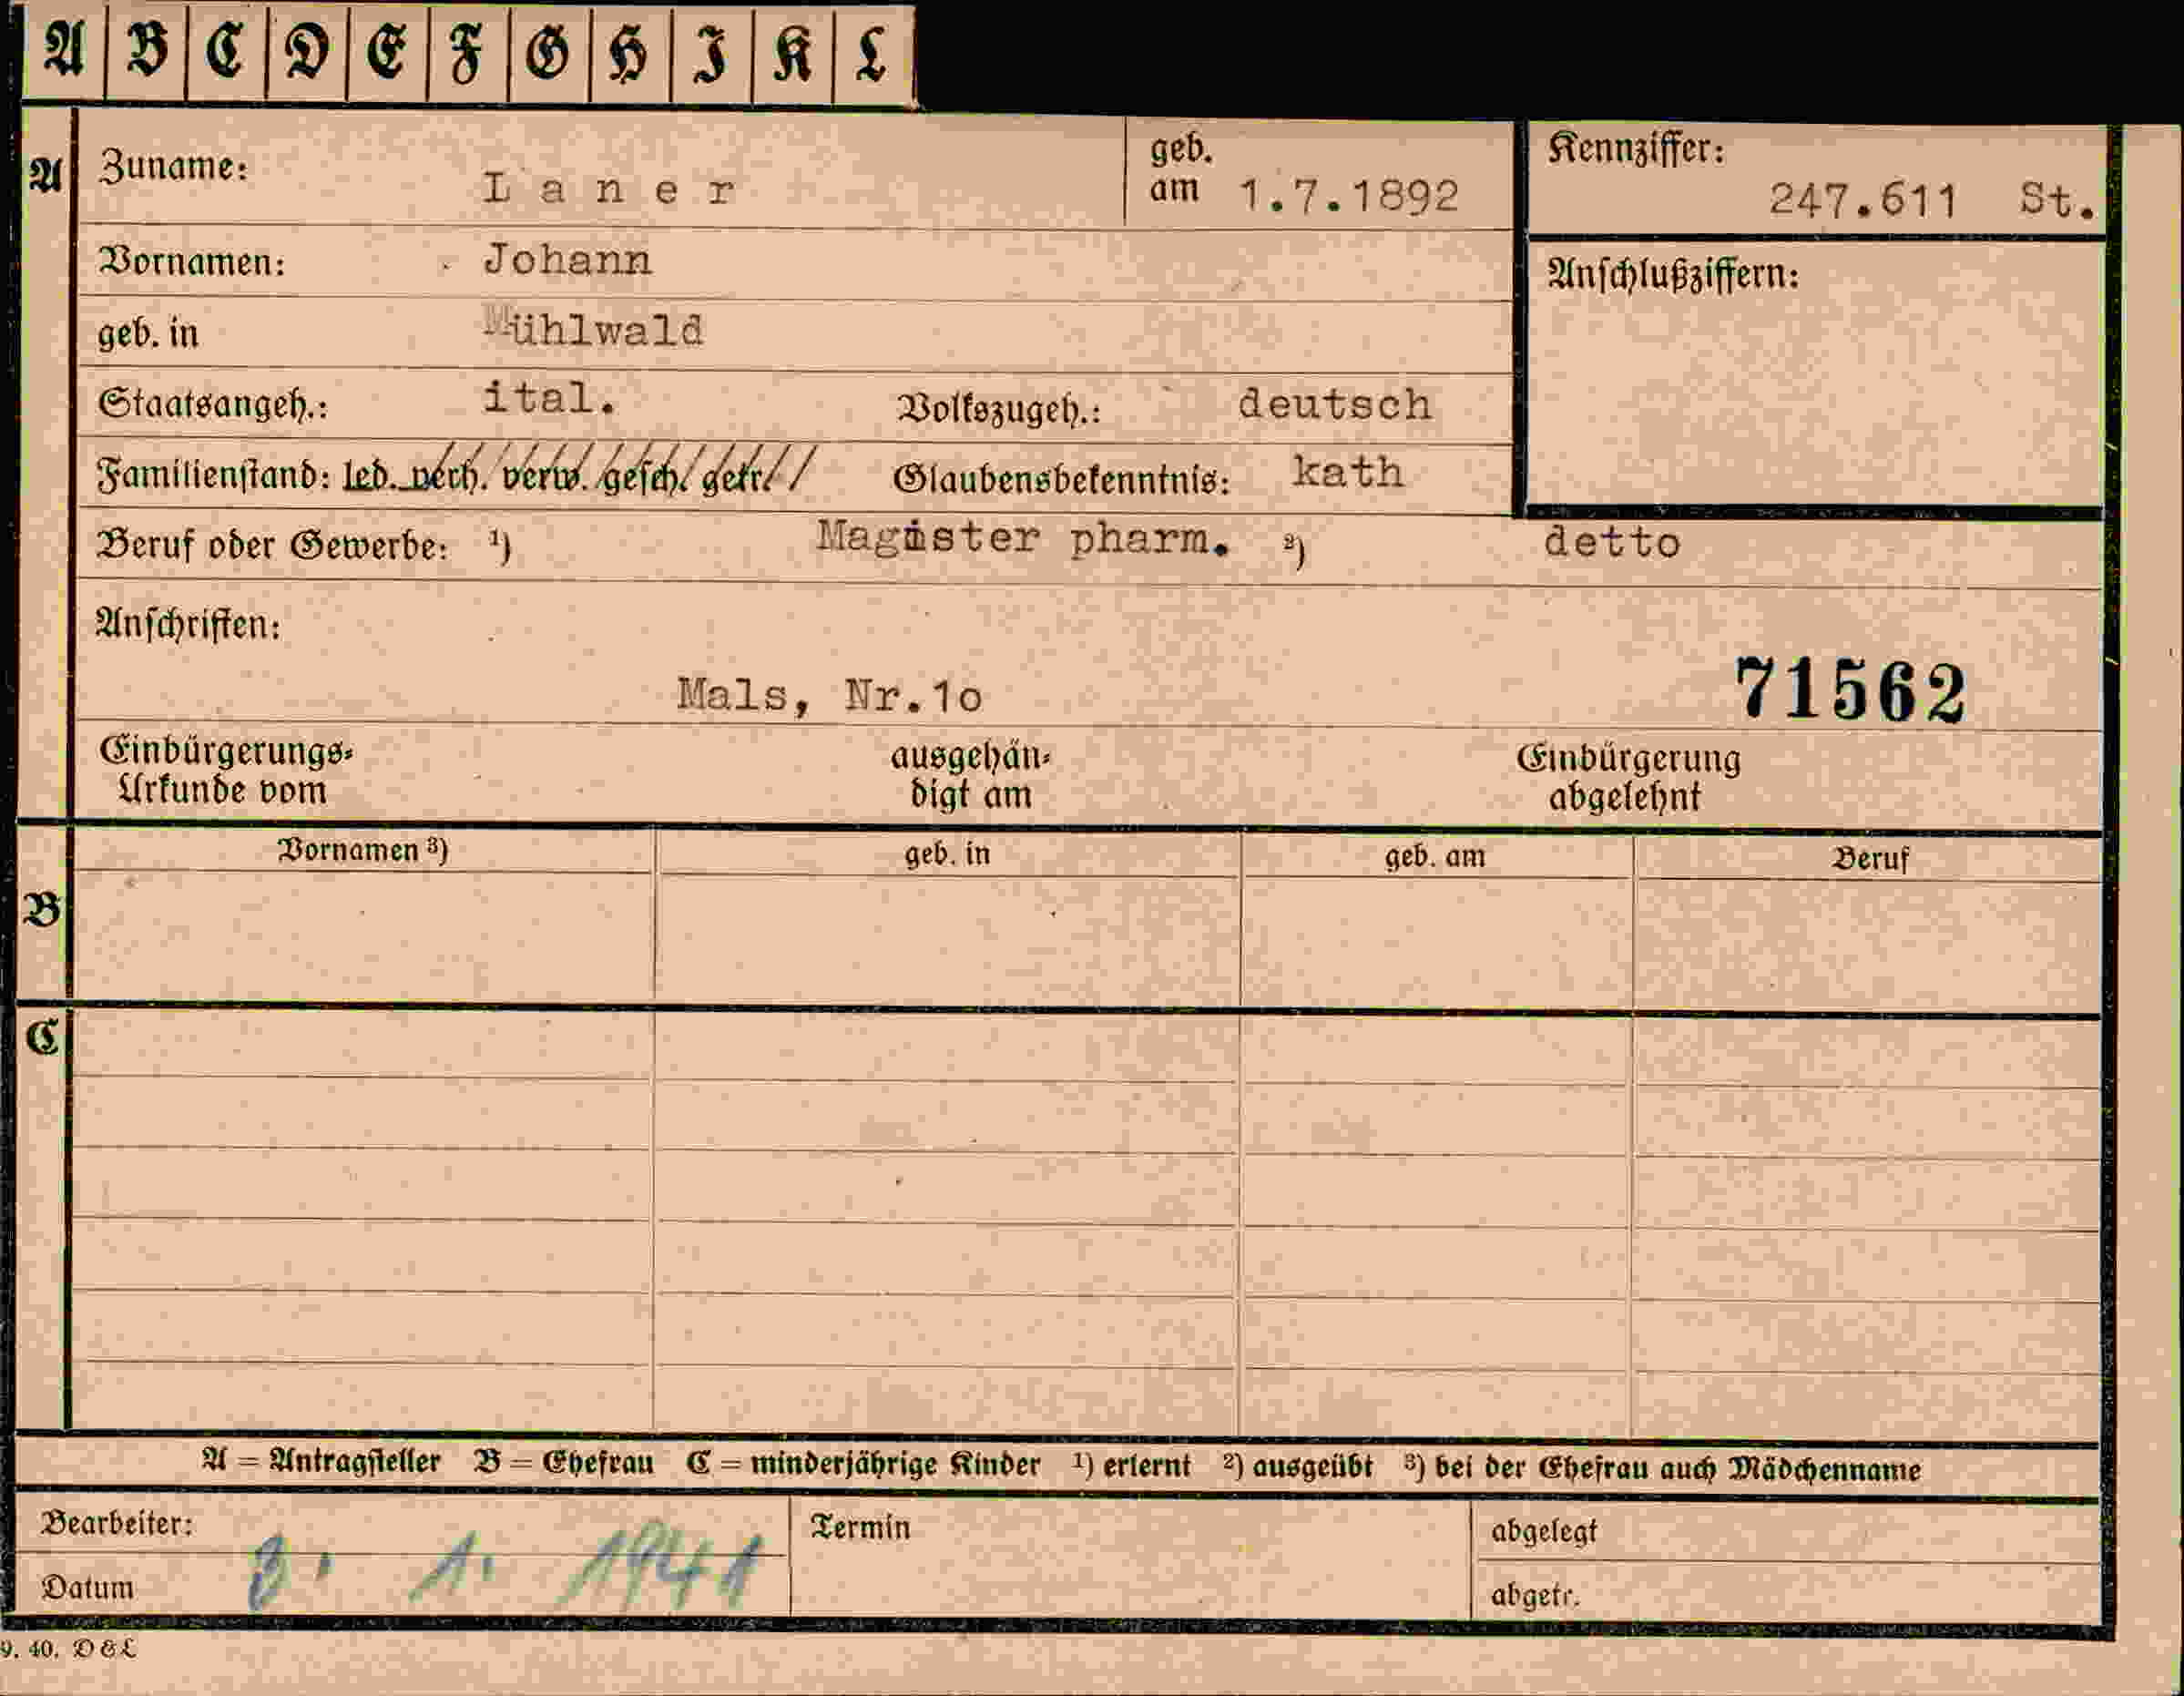 A B C D E F G H I K L
A Zuname: Laner geb. am 1.7.1892 Kennziffer: 247.611 St.
Vornamen: Johann Anschlußziffern:
geb. in Mühlwald
Staatsangeh.: ital. Volkszugeh.: deutsch
Familienstand: led. verh. verw. gesch. getr. Glaubensbekenntnis: kath
Beruf oder Gewerbe: ¹) Magister pharm. ²) detto
Anschriften:
71562
Mals, Nr.1o
Einbürgerungs- ausgehän- Einbürgerung
Urkunde vom digt am abgelehnt
Vornamen ³) geb. in geb. am Beruf
B
C
A = Antragsteller B = Ehefrau C = minderjährige Kinder ¹) erlernt ²) ausgeübt ³) bei der Ehefrau auch Mädchenname
Bearbeiter: Termin abgelegt
Datum 3. 1. 1941 abgetr.
9. 40. D & L